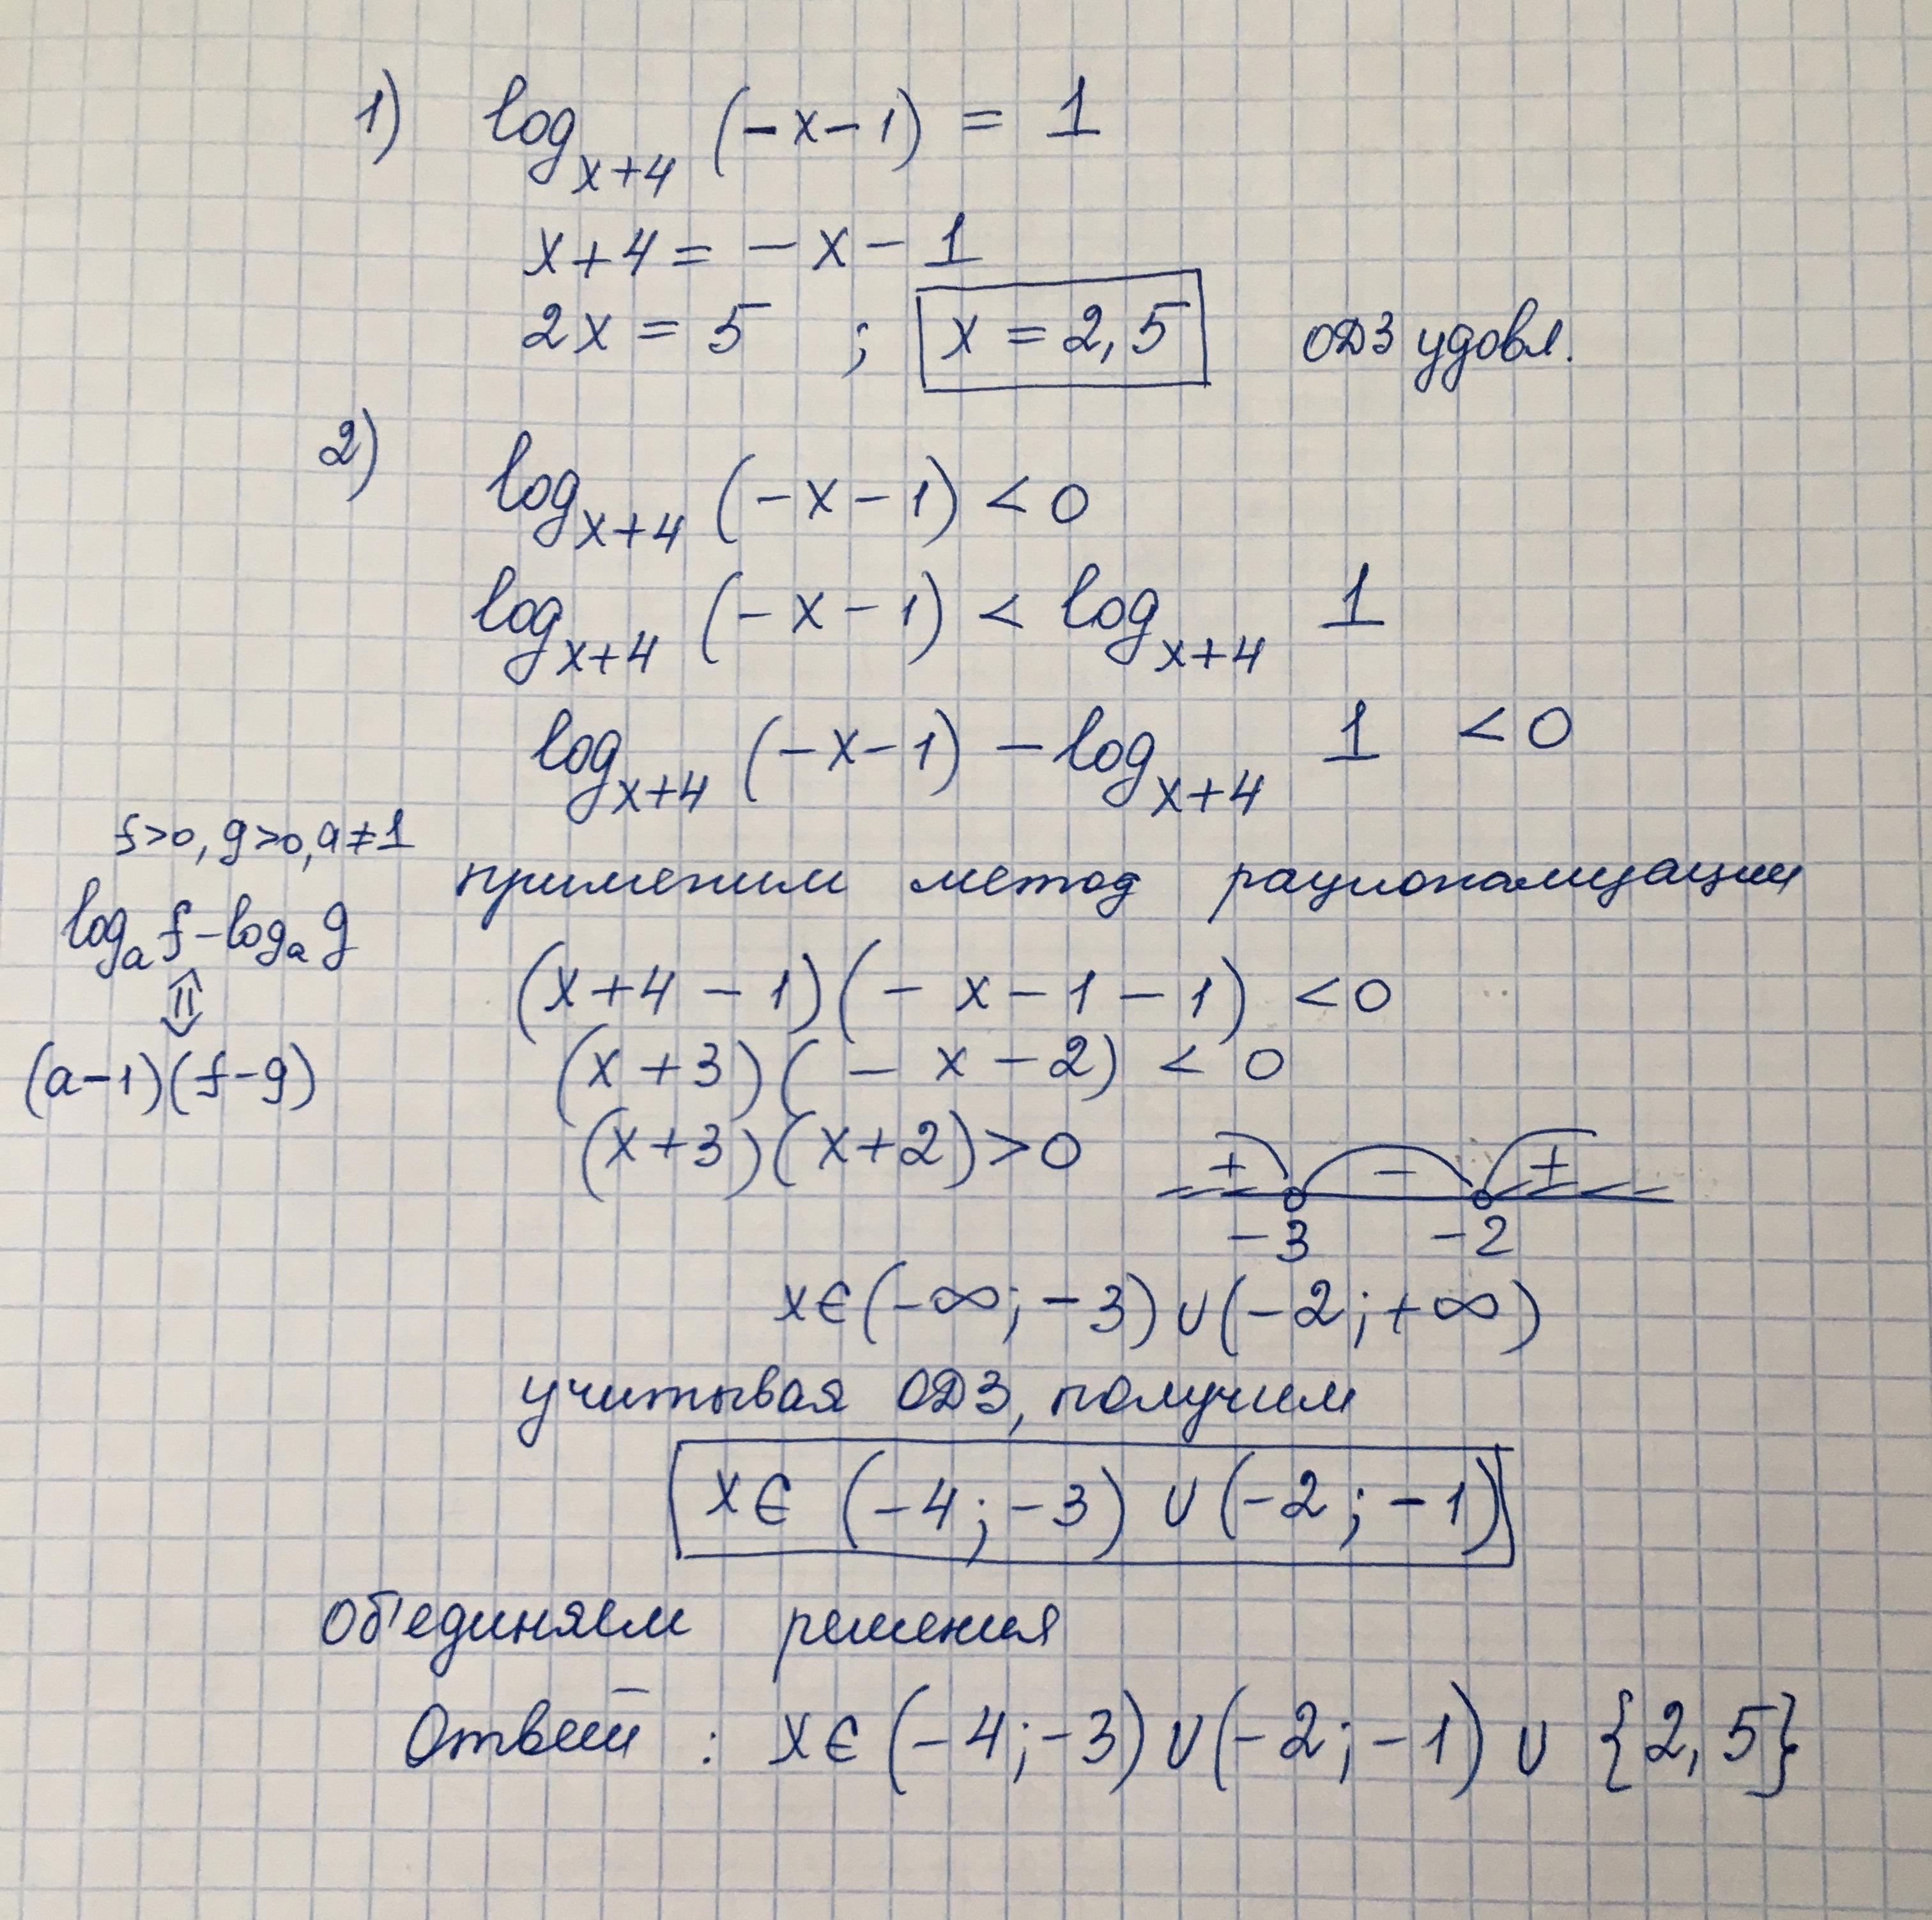 1) log_{x+4} (-x-1) = 1
x+4 = -x-1
2x = 5 ; x = 2,5 ОДЗ удовл.
2) log_{x+4} (-x-1) < 0
log_{x+4} (-x-1) < log_{x+4} 1
log_{x+4} (-x-1) - log_{x+4} 1 < 0
f>0, g>0, a≠1
log_a f - log_a g
⇕
(a-1)(f-g)
применим метод рационализации
(x+4-1)(-x-1-1) < 0
(x+3)(-x-2) < 0
(x+3)(x+2) > 0
+ - +
-3 -2
x∈(-∞;-3)∪(-2;+∞)
учитывая ОДЗ, получим
x∈ (-4;-3) ∪(-2;-1)
Об'единяем решения
Ответ : x∈(-4;-3)∪(-2;-1) ∪ {2,5}